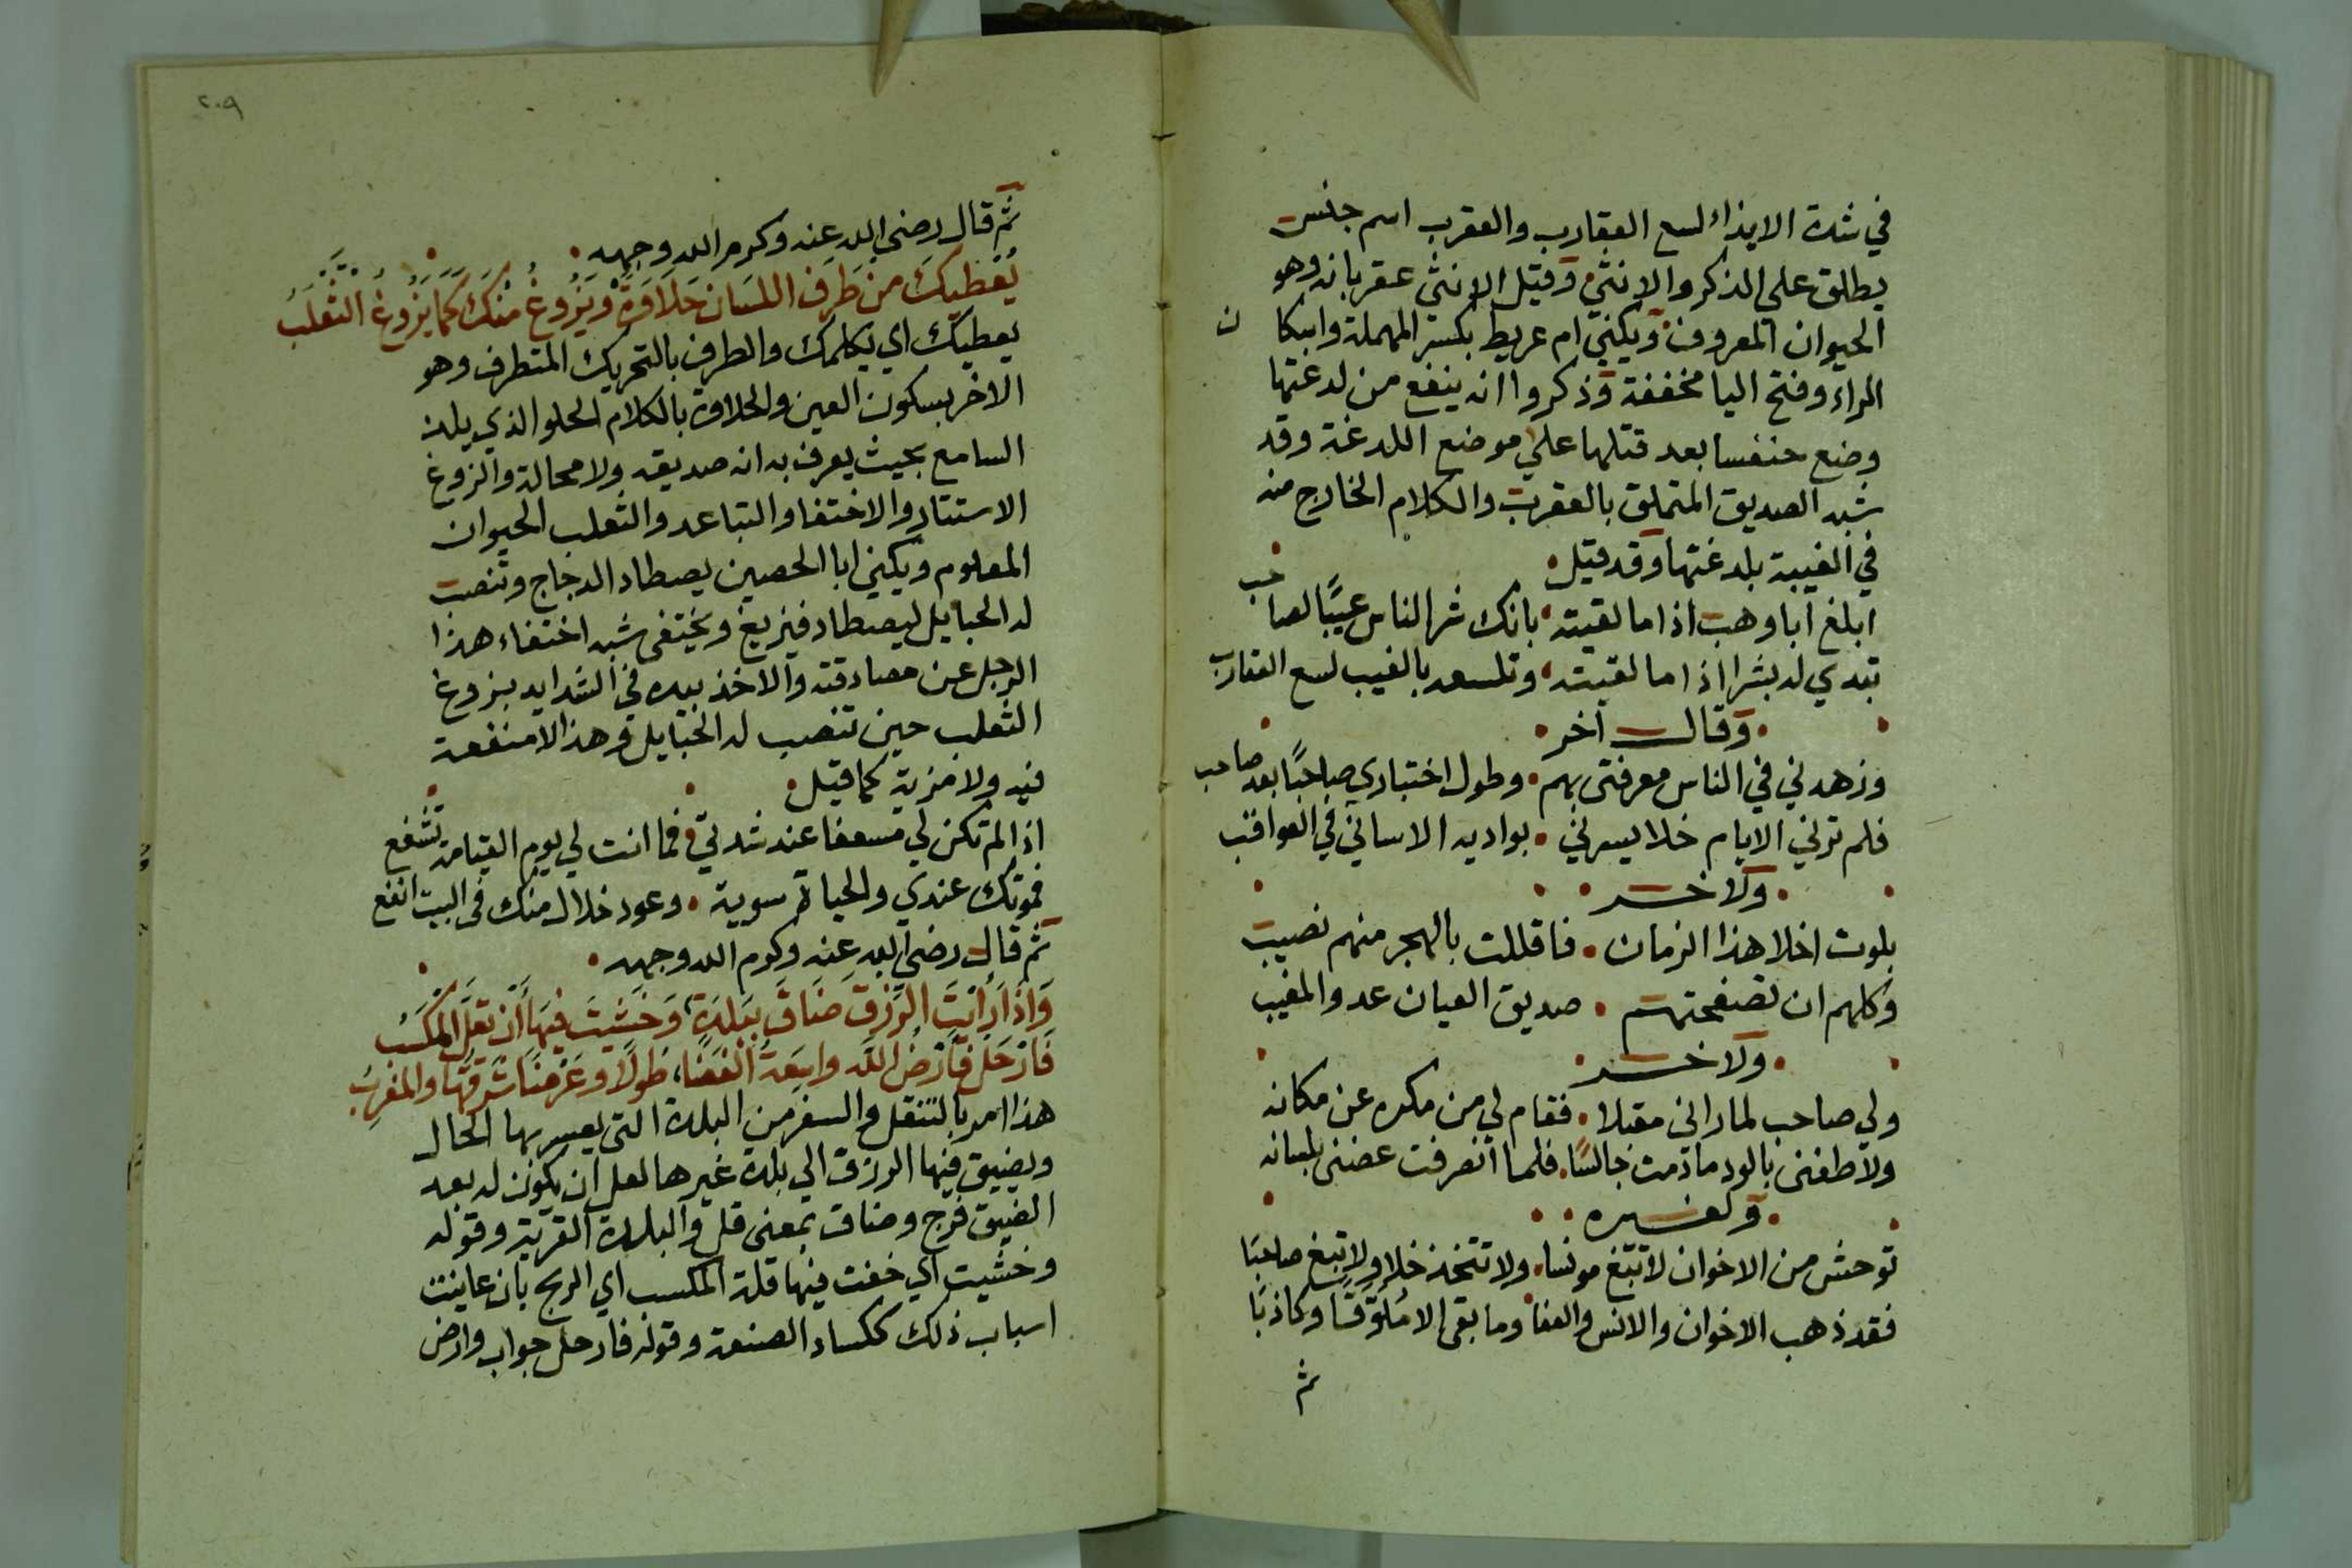 في شدة الايذاء لسع العقارب والعقرب اسم جنس
يطلق علي الذكر والانثي وقيل الانثي عقربانه وهو
الحيوان المعروف ويكني ام عريط بكسر المهملة واسكا
ن
الراء وفتح اليا مخففة وذكروا انه ينفع من لدغتها
وضع خنفسا بعد قتلها علي موضع اللدغة وقد
شبه الصديق المتملق بالعقرب والكلام الخارج منه
في الغيبة بلدغتها وقد قيل
ابلغ ابا وهب اذا ما لقيته بانك شر الناس عيبًا لصاحب
تبدي له بشرا اذا ما لقيته وتلسعه بالغيب لسع العقارب
وقال اخر
وزهدني في الناس معرفتي بهم وطول اختباري صاحبًا بعد صاحب
فلم ترني الايام خلا يسرني بواديه الا ساني في العواقب
ولاخر
بلوت اخلا هذا الزمان فاقللت بالهجر منهم نصيب
وكلهم ان تصفحتهم صديق العيان عدو المغيب
ولاخر
ولي صاحب لما راني مقبلا فقام لي من مكره عن مكانه
ولاطفني بالود ما دمت جالسًا فلما انصرفت عضني بلسانه
ولغيره
توحش من الاخوان لا تبتغ مونسا ولا تتخذ خلا ولا تبغ صاحبًا
فقد ذهب الاخوان والانس والفا وما بقي الا ملوقًا وكاذبًا
ثم
٢٠٩
ثم قال رضي الله عنه وكرم الله وجهه
يُعْطِيكَ مِنْ طَرَفِ اللسَانِ حَلَاوَةً وَيَزُوغُ مِنْكَ كَمَا يَزُوغُ الثَّعْلَبُ
يعطيك اي يكلمك والطرف بالتحريك المتطرف وهو
الاخر بسكون العين والحلاوة بالكلام الحلو الذي يلذ
السامع بحيث يعرف به انه صديقه ولا محالة والزوغ
الاستتار والاختفا والتباعد والثعلب الحيوان
المعلوم ويكني ابا الحصين يصطاد الدجاج وتنصب
له الحبايل ليصطاد فيزيغ ويختفي شبه اختفاء هذا
الرجل عن مصادقته والاخذ بيده في الشدايد بزوغ
الثعلب حين تنصب له الحبايل وهذا لا منفعة
فيه ولا مزية كما قيل
اذا لم تكن لي مسعفا عند شدتي فما انت لي يوم القيامة تشفع
فموتك عندي والحياة سوية وعود خلال منك في البيت انفع
ثم قال رضي الله عنه وكرم الله وجهه
وَاِذَا رَاَيْتَ الرِّزْقَ ضَاقَ بِبَلْدَةٍ وَخَشِيتَ فِيهَا أَنْ تَقِلَّ المَكْسَبُ
فَارْحَلْ فَأَرْضُ اللَّه وَاسِعَةُ الْفَضَا طُولًا وَعَرْضًا شَرْقُهَا والمَغْرِبُ
هذا امر بالتنقل والسفر من البلدة التي يعسر بها الحال
ويضيق فيها الرزق الي بلدة غيرها لعل ان يكون له بعد
الضيق فرج وضاق بمعني قل والبلدة القرية وقوله
وخشيت اي خفت فيها قلة المكسب اي الربح بان عاينت
اسباب ذلك ككساد الصنعة وقوله فارحل جواب وارض